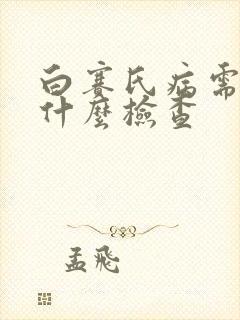 白賽氏病需
什麼檢查
孟飛